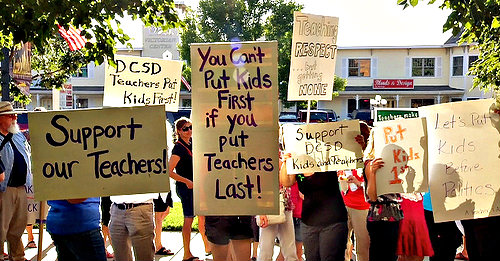 DCSD
Teachers Put
Kids First!
Support
our Teachers!
You Can't
Put Kids
First
if you
put
Teachers
Last!
Teaching
RESPECT
getting
NONE
Blinds & Design
Support
DCSD
Kids and Teachers
Teachers make
Put
Kids
1st
Let's Put
Kids
Before
Politics